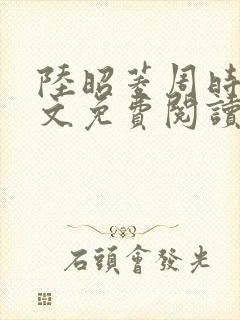 陸昭菱周時
文免費閱讀
石頭會發光